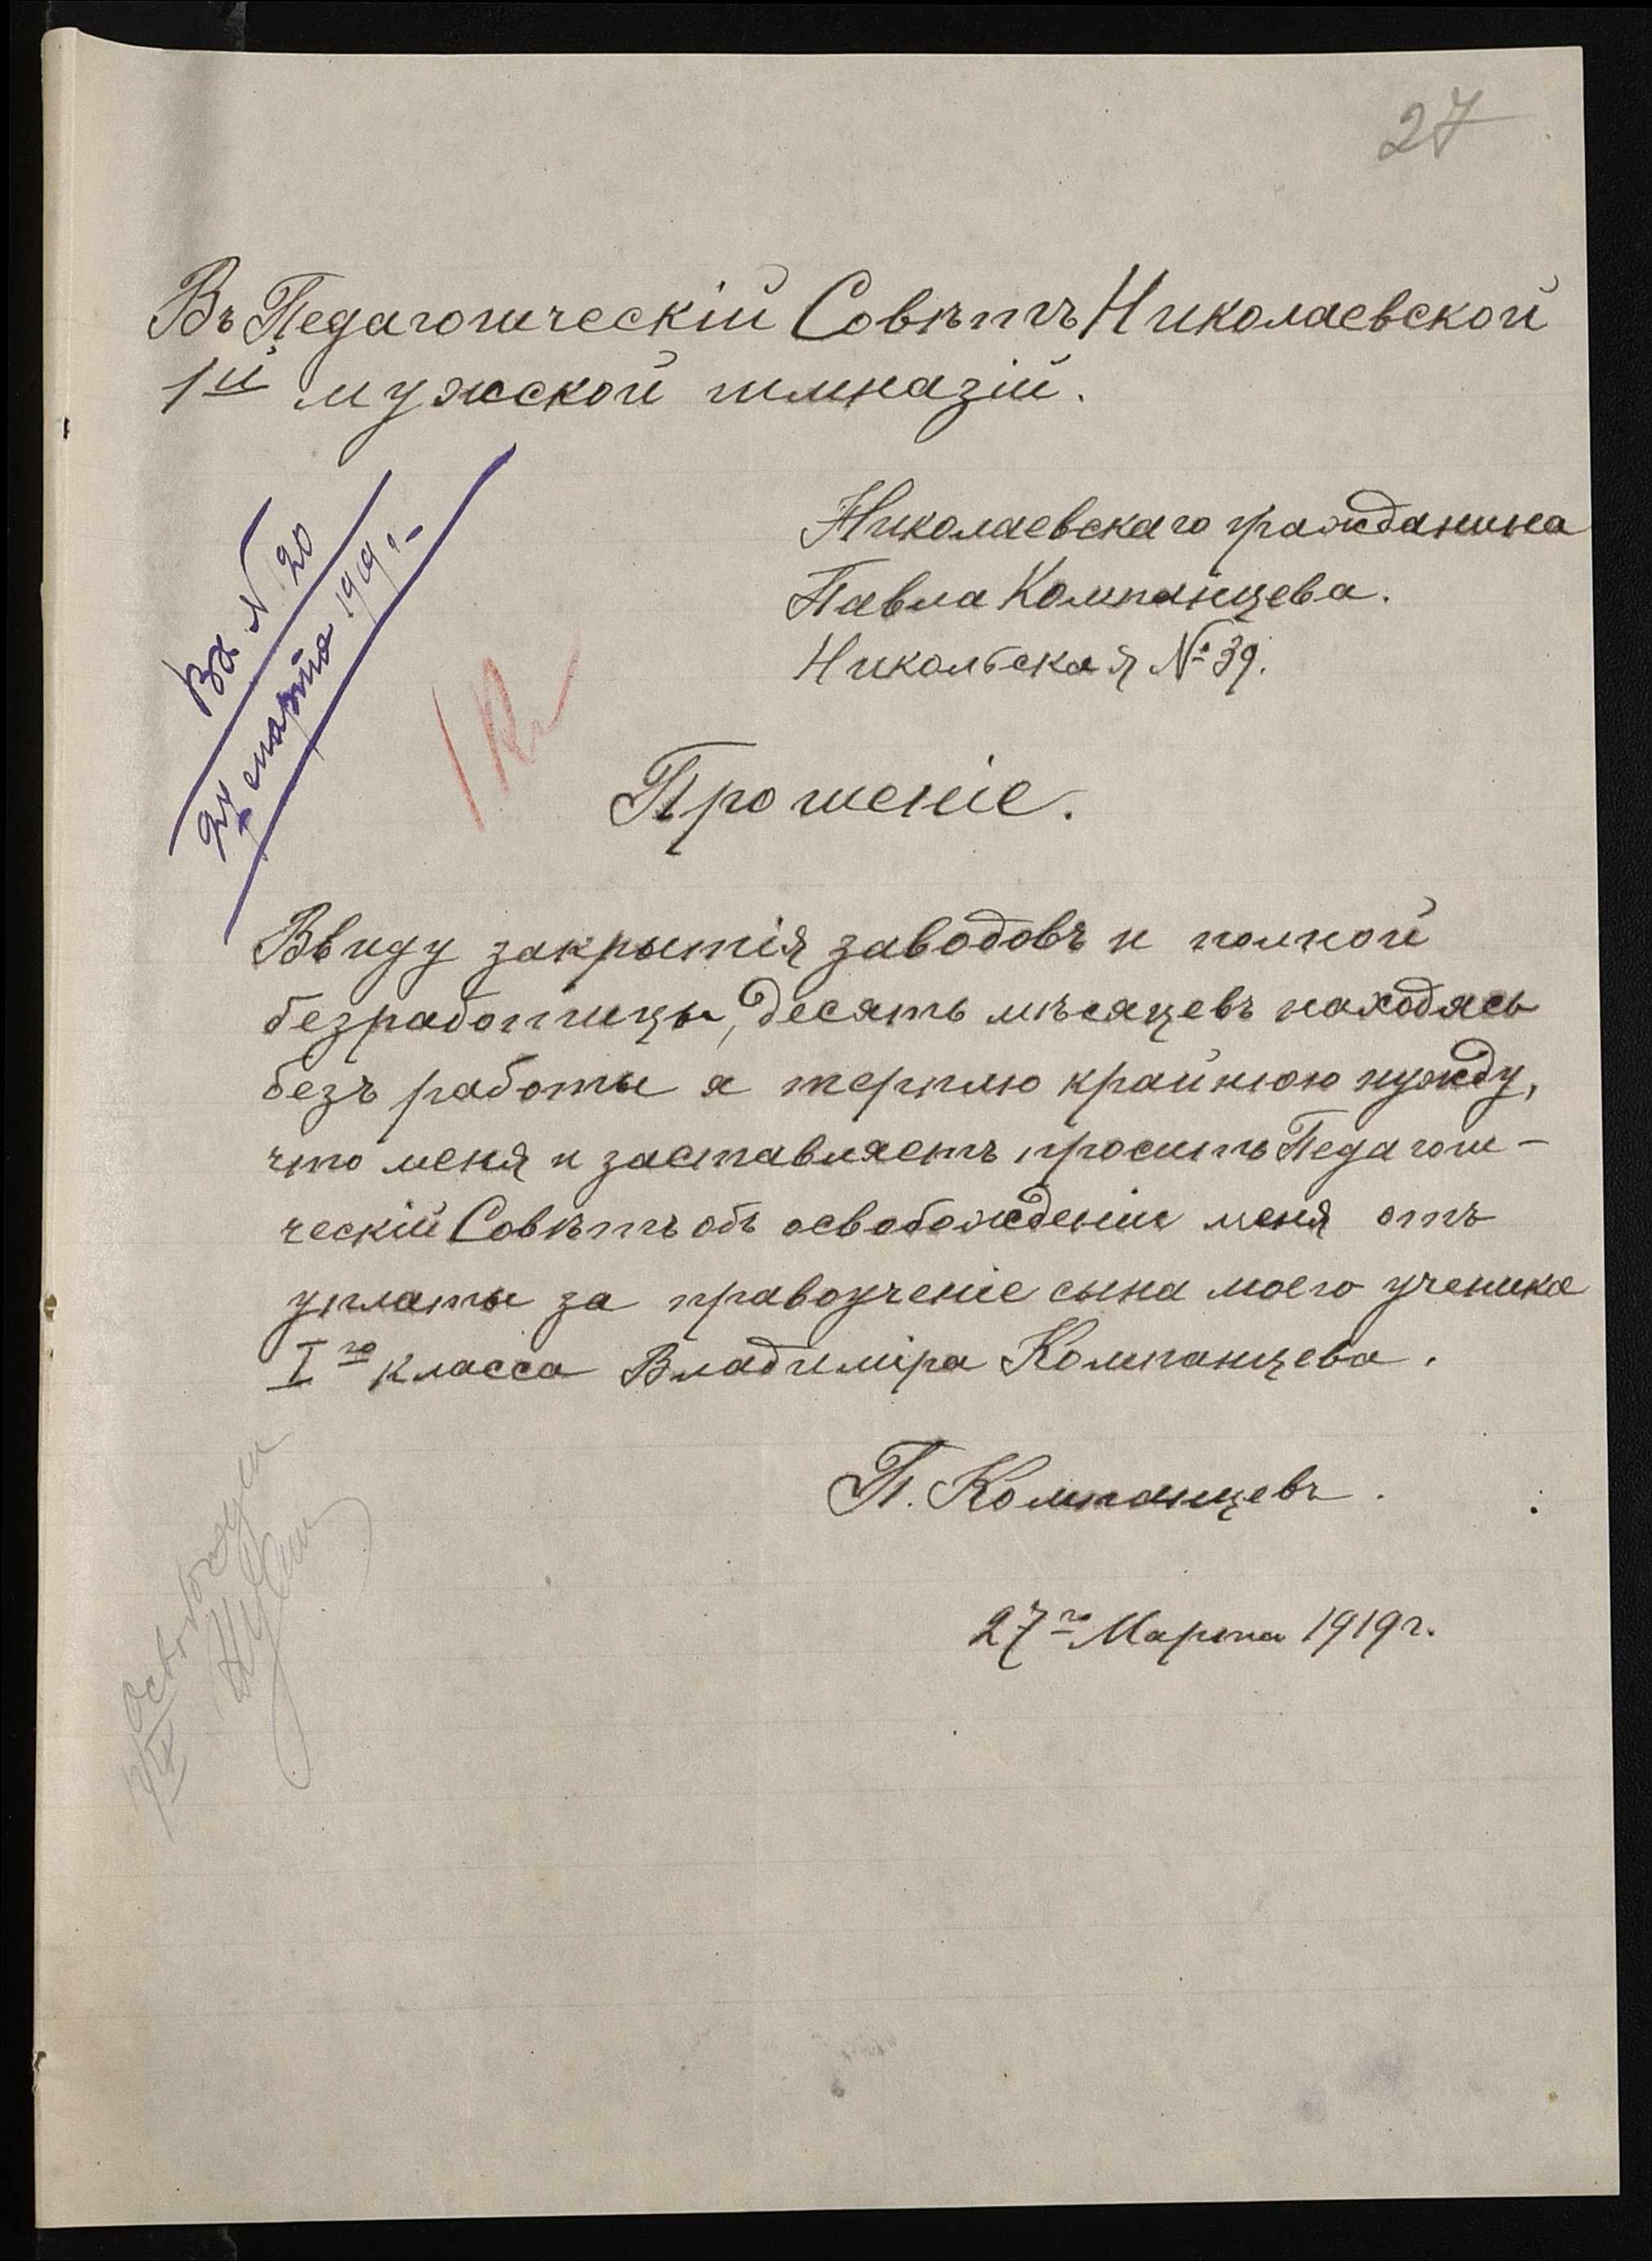 27
Въ Педагогическій Совѣтъ Николаевской
1й мужской гимназій.
Вх. № 20
27 марта 1919 г.
1 Кл
Николаевскаго гражданина
Павла Компанцева.
Никольская № 39.
Прошеніе.
Ввиду закрытія заводовъ и полной
безработицы, десять мѣсяцевъ находясь
безъ работы я терплю крайнюю нужду,
что меня и заставляетъ просить Педагоги-
ческій Совѣтъ объ освобожденіи меня отъ
уплаты за правоученіе сына моего ученика
I го класса Владиміра Компанцева.
П. Компанцевъ.
27 го Марта 1919 г.